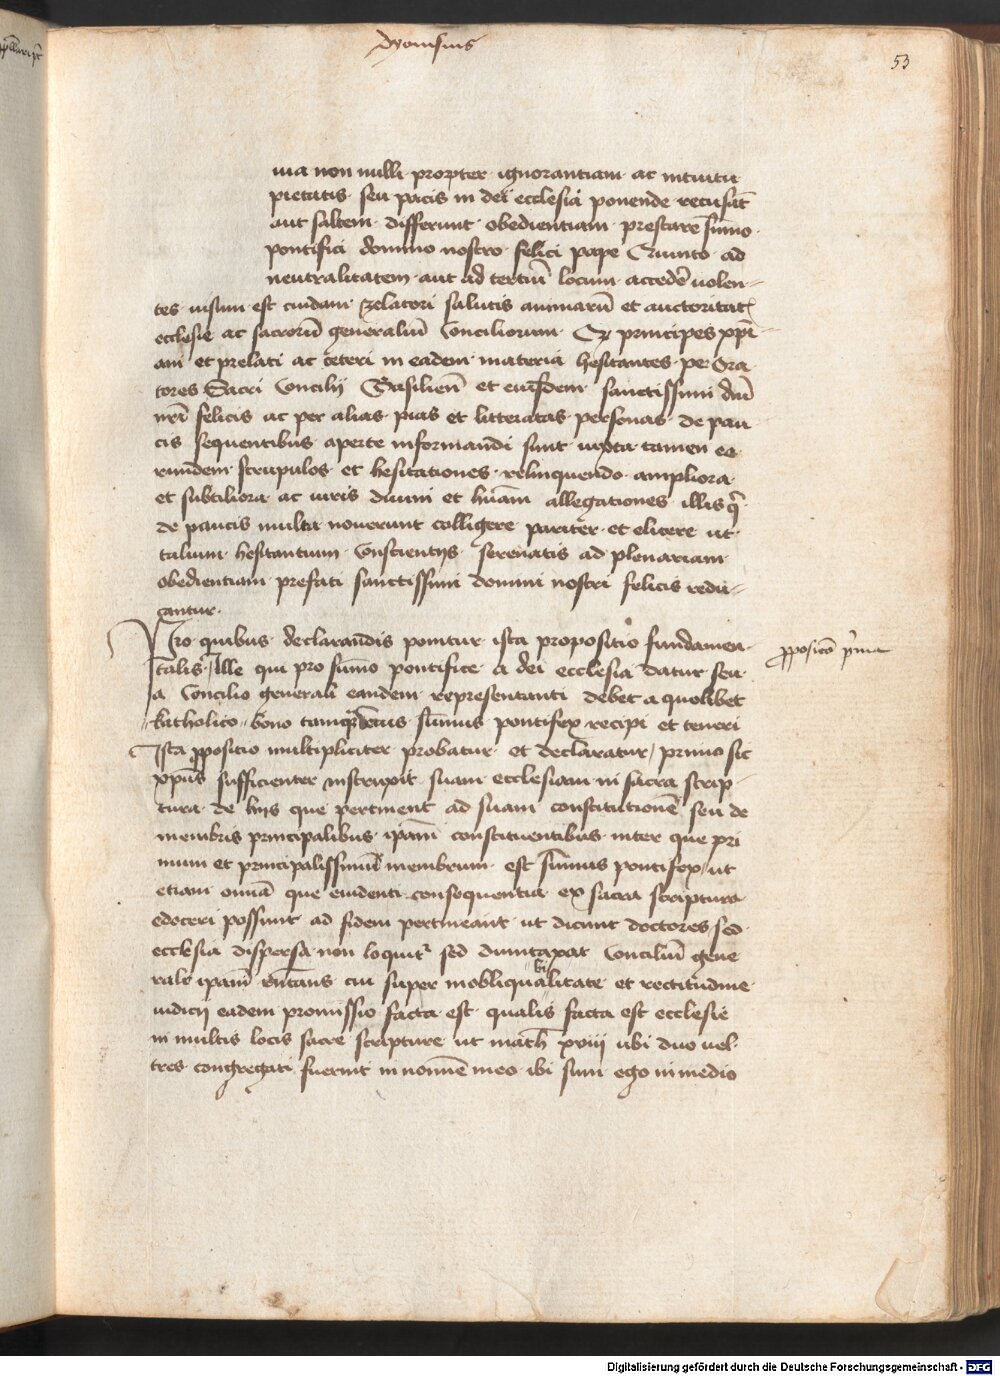 dyonisius
53
uia non nulli propter ignorantiam ac intuitu
pietatis seu pacis in dei ecclesia ponende recusāt
aut saltem differunt obedientiam prestare sūmo
pontifici domino nostro felici pape Quinto ad
neutralitatem aut ad tertiū locum accedēr uolen-
tes uisum est cuidam zelatori salutis animarū et auctoritat
ecclesie ac sacrorū generaliū Conciliorum Qz principes xpi-
ani et prelati ac ceteri in eadem materia hesitantes per Ora
tores Sacri Concilij Basilieñ et eiusdem sanctissimi dñi
nrī felicis ac per alias pias et litteratas personas de pau
cis sequentibus aperte informandi sunt iuxta tamen eo
rundem scrupulos et hesitationes relinquendo ampliora
et subtiliora ac iuris diuini et hūani allegationes illis q̄
de paucis multa nouerunt colligere pariter et elicere ut
talium hesitantium Conscientijs serenatis ad plenariam
obedientiam prefati sanctissimi domini nostri felicis redu-
cantur
Pro quibus declarandis ponitur ista propositio fundamen
talis Ille qui pro sūmo pontifice a dei ecclesia datur seu
a Concilio generali eandem representanti debet a quolibet
katholico bono tamq̄ uerus sūmus pontifex recipi et teneri
propositō pīma
Ista ppositio multipliciter probatur et declaratur primo sic
xpūs sufficienter instruxit suam ecclesiam in sacra scrip-
tura de hijs que pertinent ad suam constitutionē seu de
membris principalibus ipam̄ constituentibus inter que pri
mum et principalissimū membrum est sūmus pontifex ut
etiam omīa que euidenti consequentia ex sacra scriptura
edoceri possunt ad fidem pertineant ut dicunt doctores sed
ecclesia dispersa non loquit sed dumtaxat Conciliū gene
rale ipam̄ rñtans cui super inobliquabilitate et rectitudine
iudicij eadem promissio facta est qualis facta est ecclesie
in multis locis sacre scripture ut math xviij ubi duo uel
tres congregati fuerint in nomīe meo ibi sum ego in medio
Digitalisierung gefördert durch die Deutsche Forschungsgemeinschaft - DFG